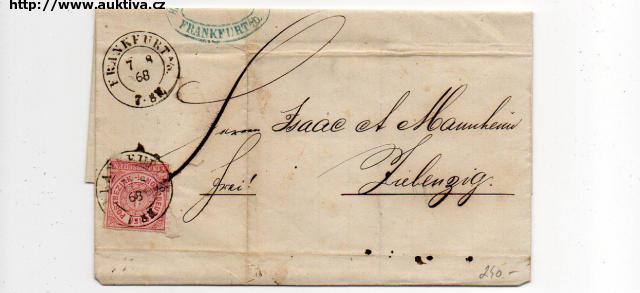 http://www.auktiva.cz
FRANKFURT a/O.
FRANKFURT a/O.
7 8
68
7-8V.
Herrn Isaac A Mannheim
frei!
Zielenzig.
FRANKFURT
68
240.-